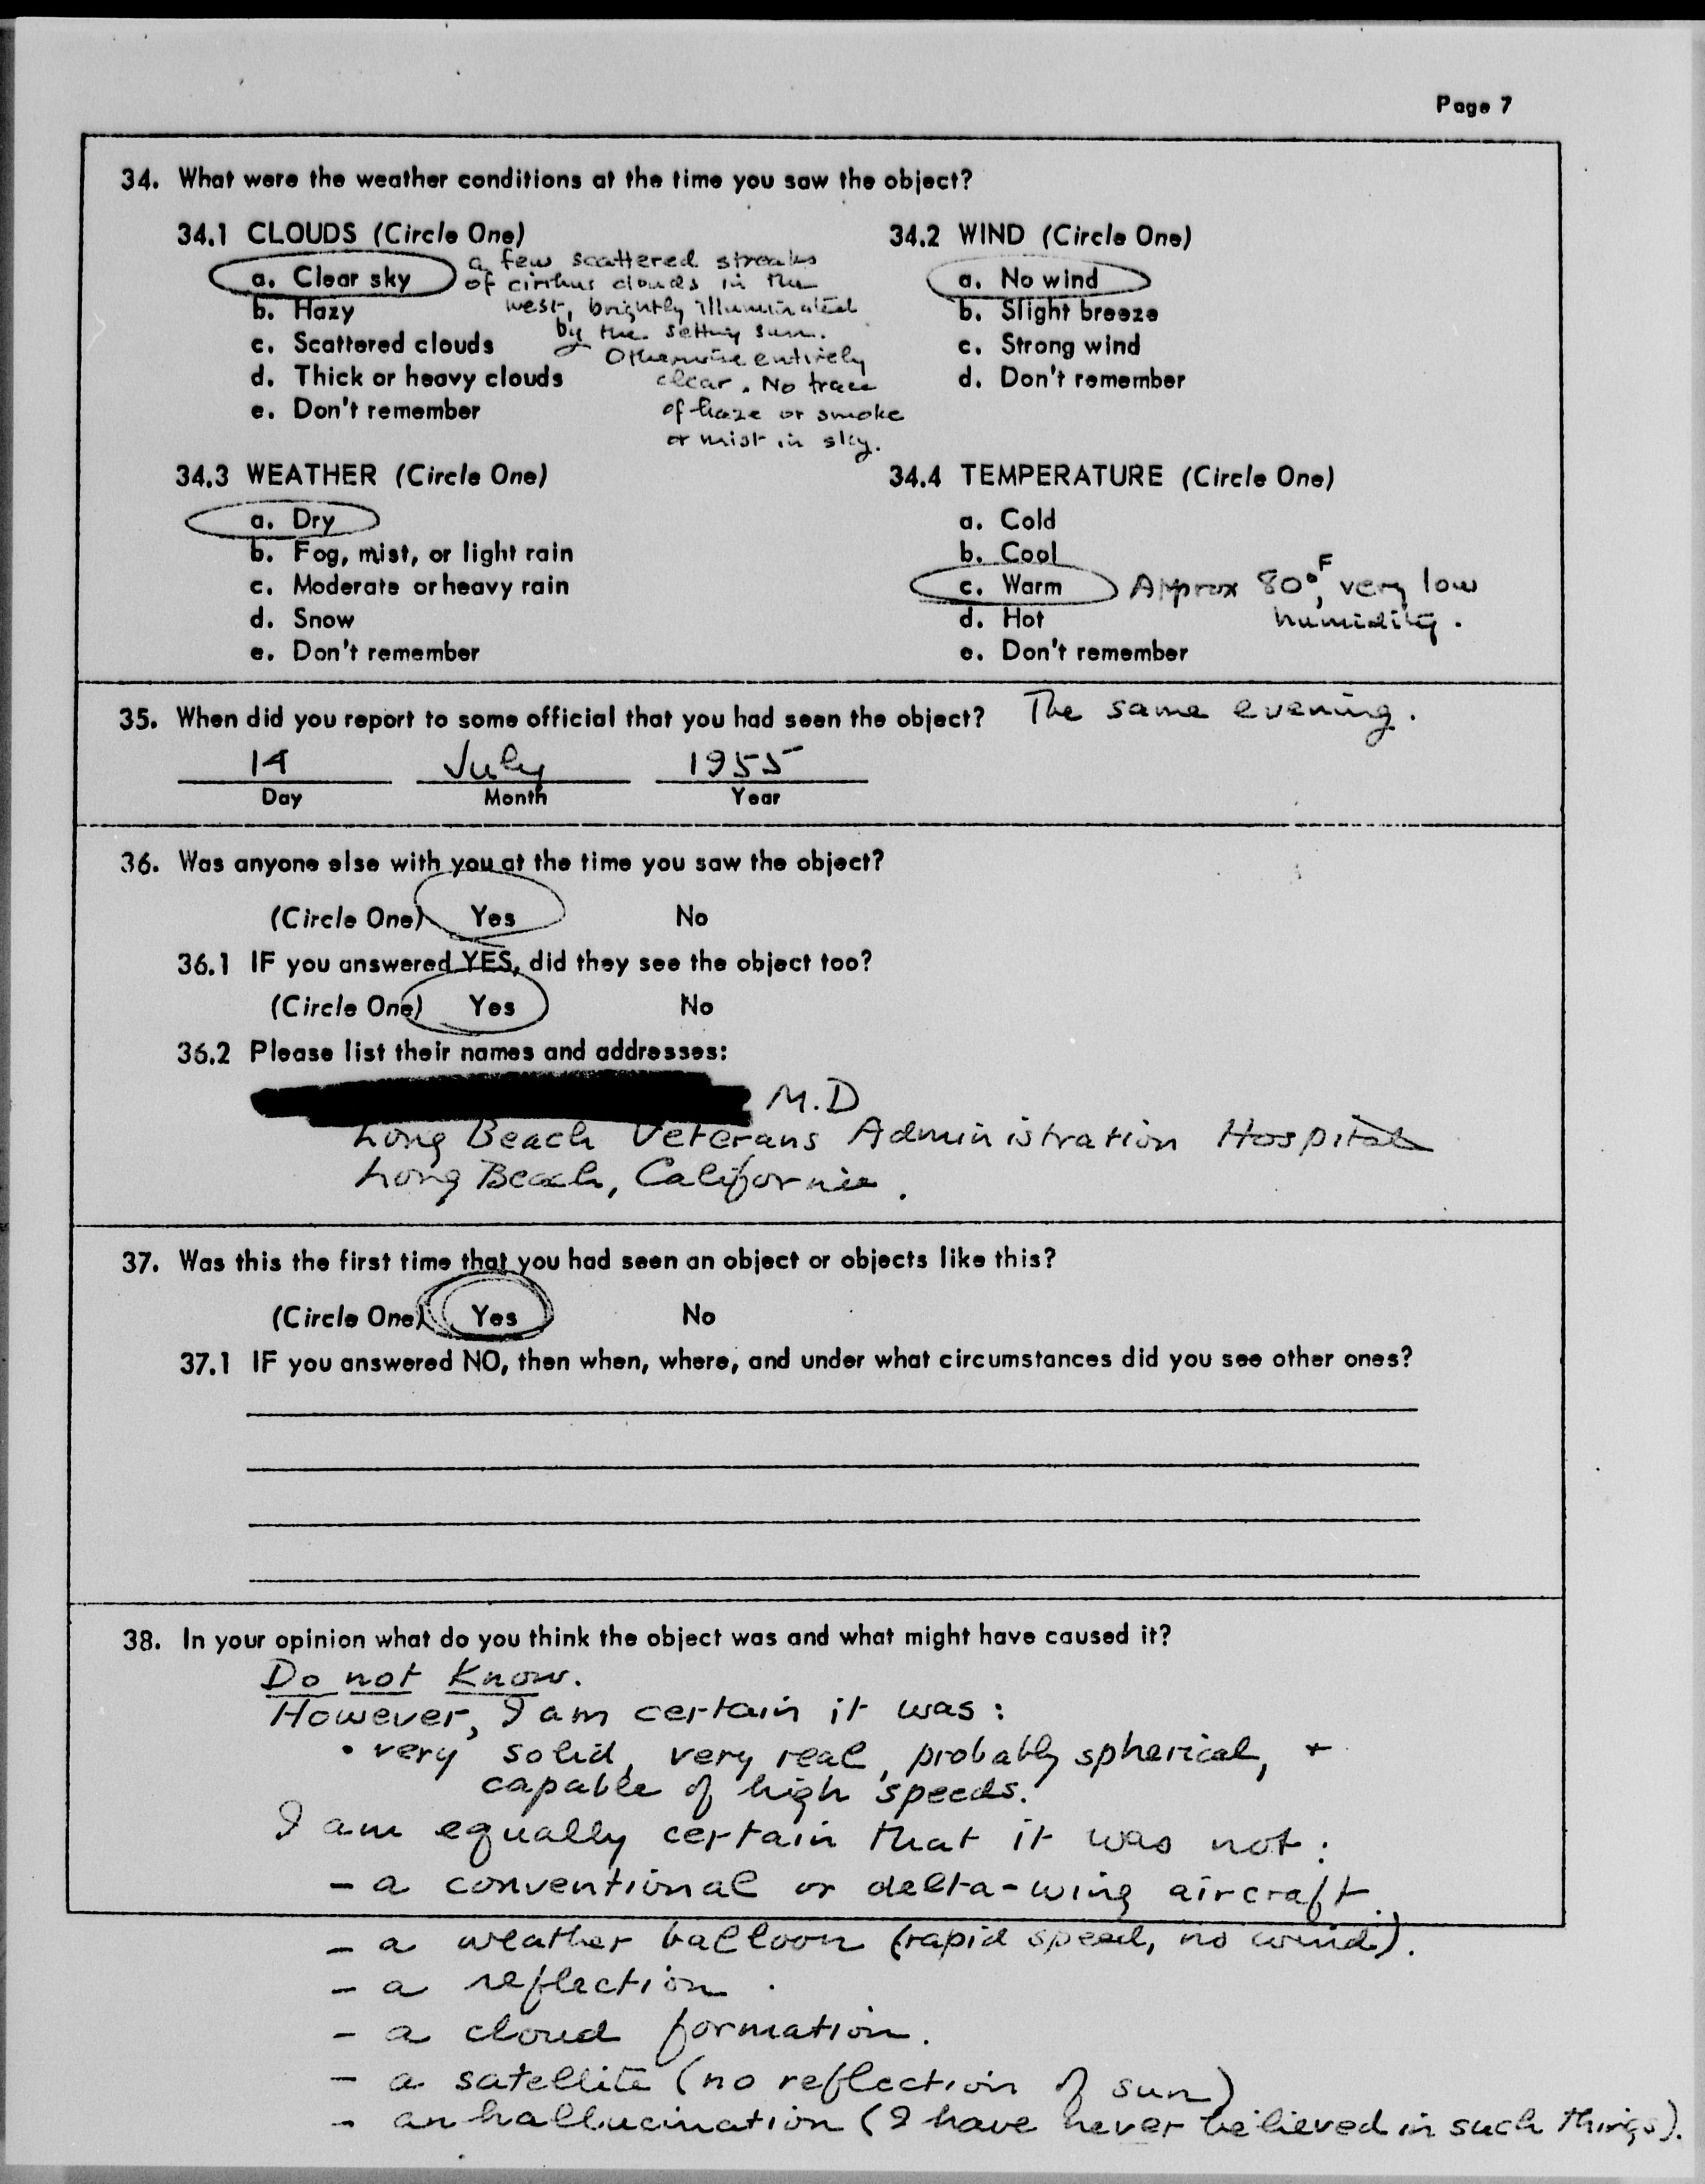 Page 7
34. What were the weather conditions at the time you saw the object?
34.1 CLOUDS (Circle One)
a. Clear sky
b. Hazy
c. Scattered clouds
d. Thick or heavy clouds
e. Don't remember
a few scattered streaks
of cirrhus clouds in the
west, brightly illuminated
by the setting sun.
Otherwise entirely
clear. No trace
of haze or smoke
or mist in sky.
34.2 WIND (Circle One)
a. No wind
b. Slight breeze
c. Strong wind
d. Don't remember
34.3 WEATHER (Circle One)
a. Dry
b. Fog, mist, or light rain
c. Moderate or heavy rain
d. Snow
e. Don't remember
34.4 TEMPERATURE (Circle One)
a. Cold
b. Cool
c. Warm Approx 80°F, very low
d. Hot humidity.
e. Don't remember
35. When did you report to some official that you had seen the object? The same evening.
14 July 1955
Day Month Year
36. Was anyone else with you at the time you saw the object?
(Circle One) Yes No
36.1 IF you answered YES, did they see the object too?
(Circle One) Yes No
36.2 Please list their names and addresses:
M.D
Long Beach Veterans Administration Hospital
Long Beach, California.
37. Was this the first time that you had seen an object or objects like this?
(Circle One) Yes No
37.1 IF you answered NO, then when, where, and under what circumstances did you see other ones?
38. In your opinion what do you think the object was and what might have caused it?
Do not know.
However, I am certain it was:
• very solid, very real, probably spherical, +
capable of high speeds.
I am equally certain that it was not:
- a conventional or delta-wing aircraft.
- a weather balloon (rapid speed, no wind).
- a reflection.
- a cloud formation.
- a satellite (no reflection of sun)
- an hallucination (I have never believed in such things).